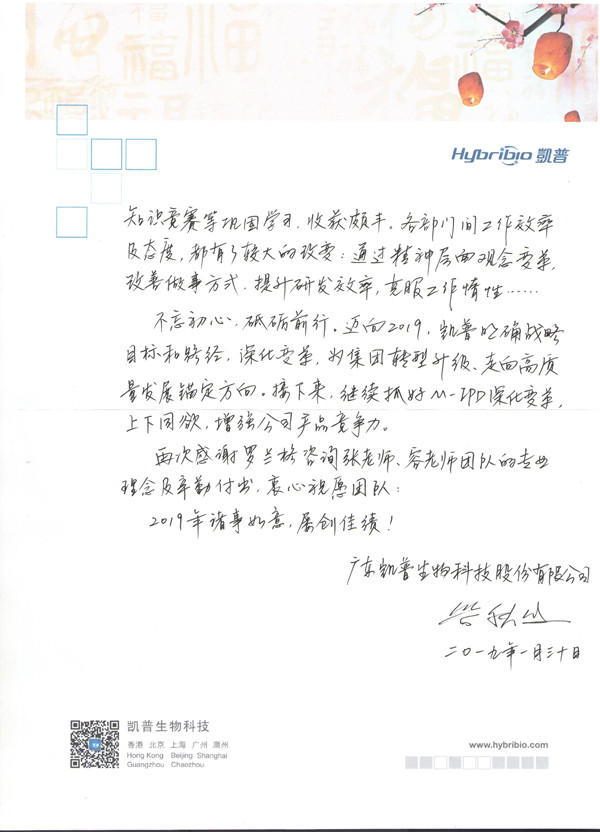 Hybribio 凯普
知识竞赛等巩固学习，收获颇丰。各部门间工作效率
及态度，都有了较大的改变：通过精神层面观念变革，
改善做事方式，提升研发效率，克服工作惰性……
不忘初心，砥砺前行。迈向2019，凯普明确战略
目标和路径，深化变革，为集团转型升级、走向高质
量发展锚定方向。接下来，继续抓好M-IPD深化变革，
上下同欲，增强公司产品竞争力。
再次感谢罗兰格咨询张老师、容老师团队的专业
理念及辛勤付出，衷心祝愿团队：
2019年诸事如意，屡创佳绩！
广东凯普生物科技股份有限公司
二〇一九年一月三十日
凯普生物科技
香港 北京 上海 广州 潮州
Hong Kong Beijing Shanghai
Guangzhou Chaozhou
www.hybribio.com